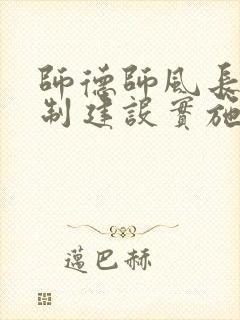 師德師風長
制建設實施
邁巴赫